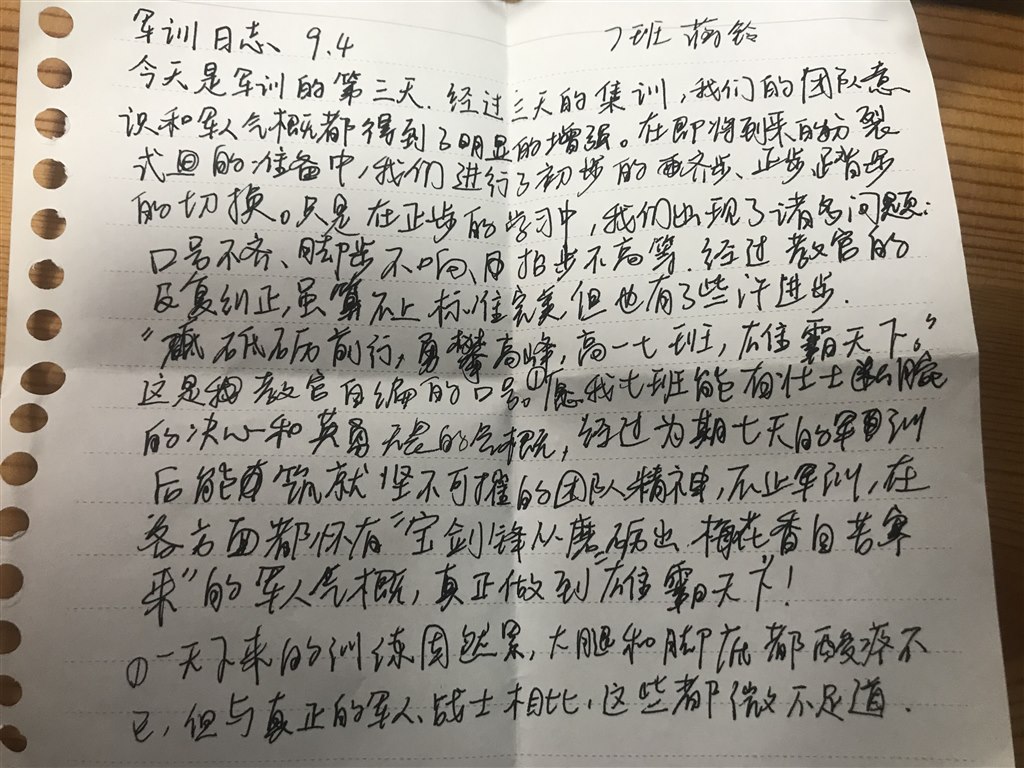 军训日志 9.4 7班 蒋铃
今天是军训的第三天.经过三天的集训,我们的团队意
识和军人气概都得到了明显的增强。在即将到来的分裂
式且的准备中,我们进行了初步的齐步、正步、跨步
的切换。只是在正步的学习中,我们出现了诸多问题:
口号不齐、脚步不响、抬步不高等.经过教官的
反复纠正,虽算不上标准完美但也有了些许进步.
“砥砺前行,勇攀高峰,高一七班,雄霸天下。”
这是教官自编的口号。①愿我七班能有壮士断腕
的决心和英勇无畏的气概,经过为期七天的军训
后能筑就坚不可摧的团队精神,不止军训,在
各方面都怀有“宝剑锋从磨砺出 梅花香自苦寒
来”的军人气概,真正做到“雄霸天下”!
①一天下来的训练固然累,大腿和脚底都酸疼不
已,但与真正的军人、战士相比,这些都微不足道.